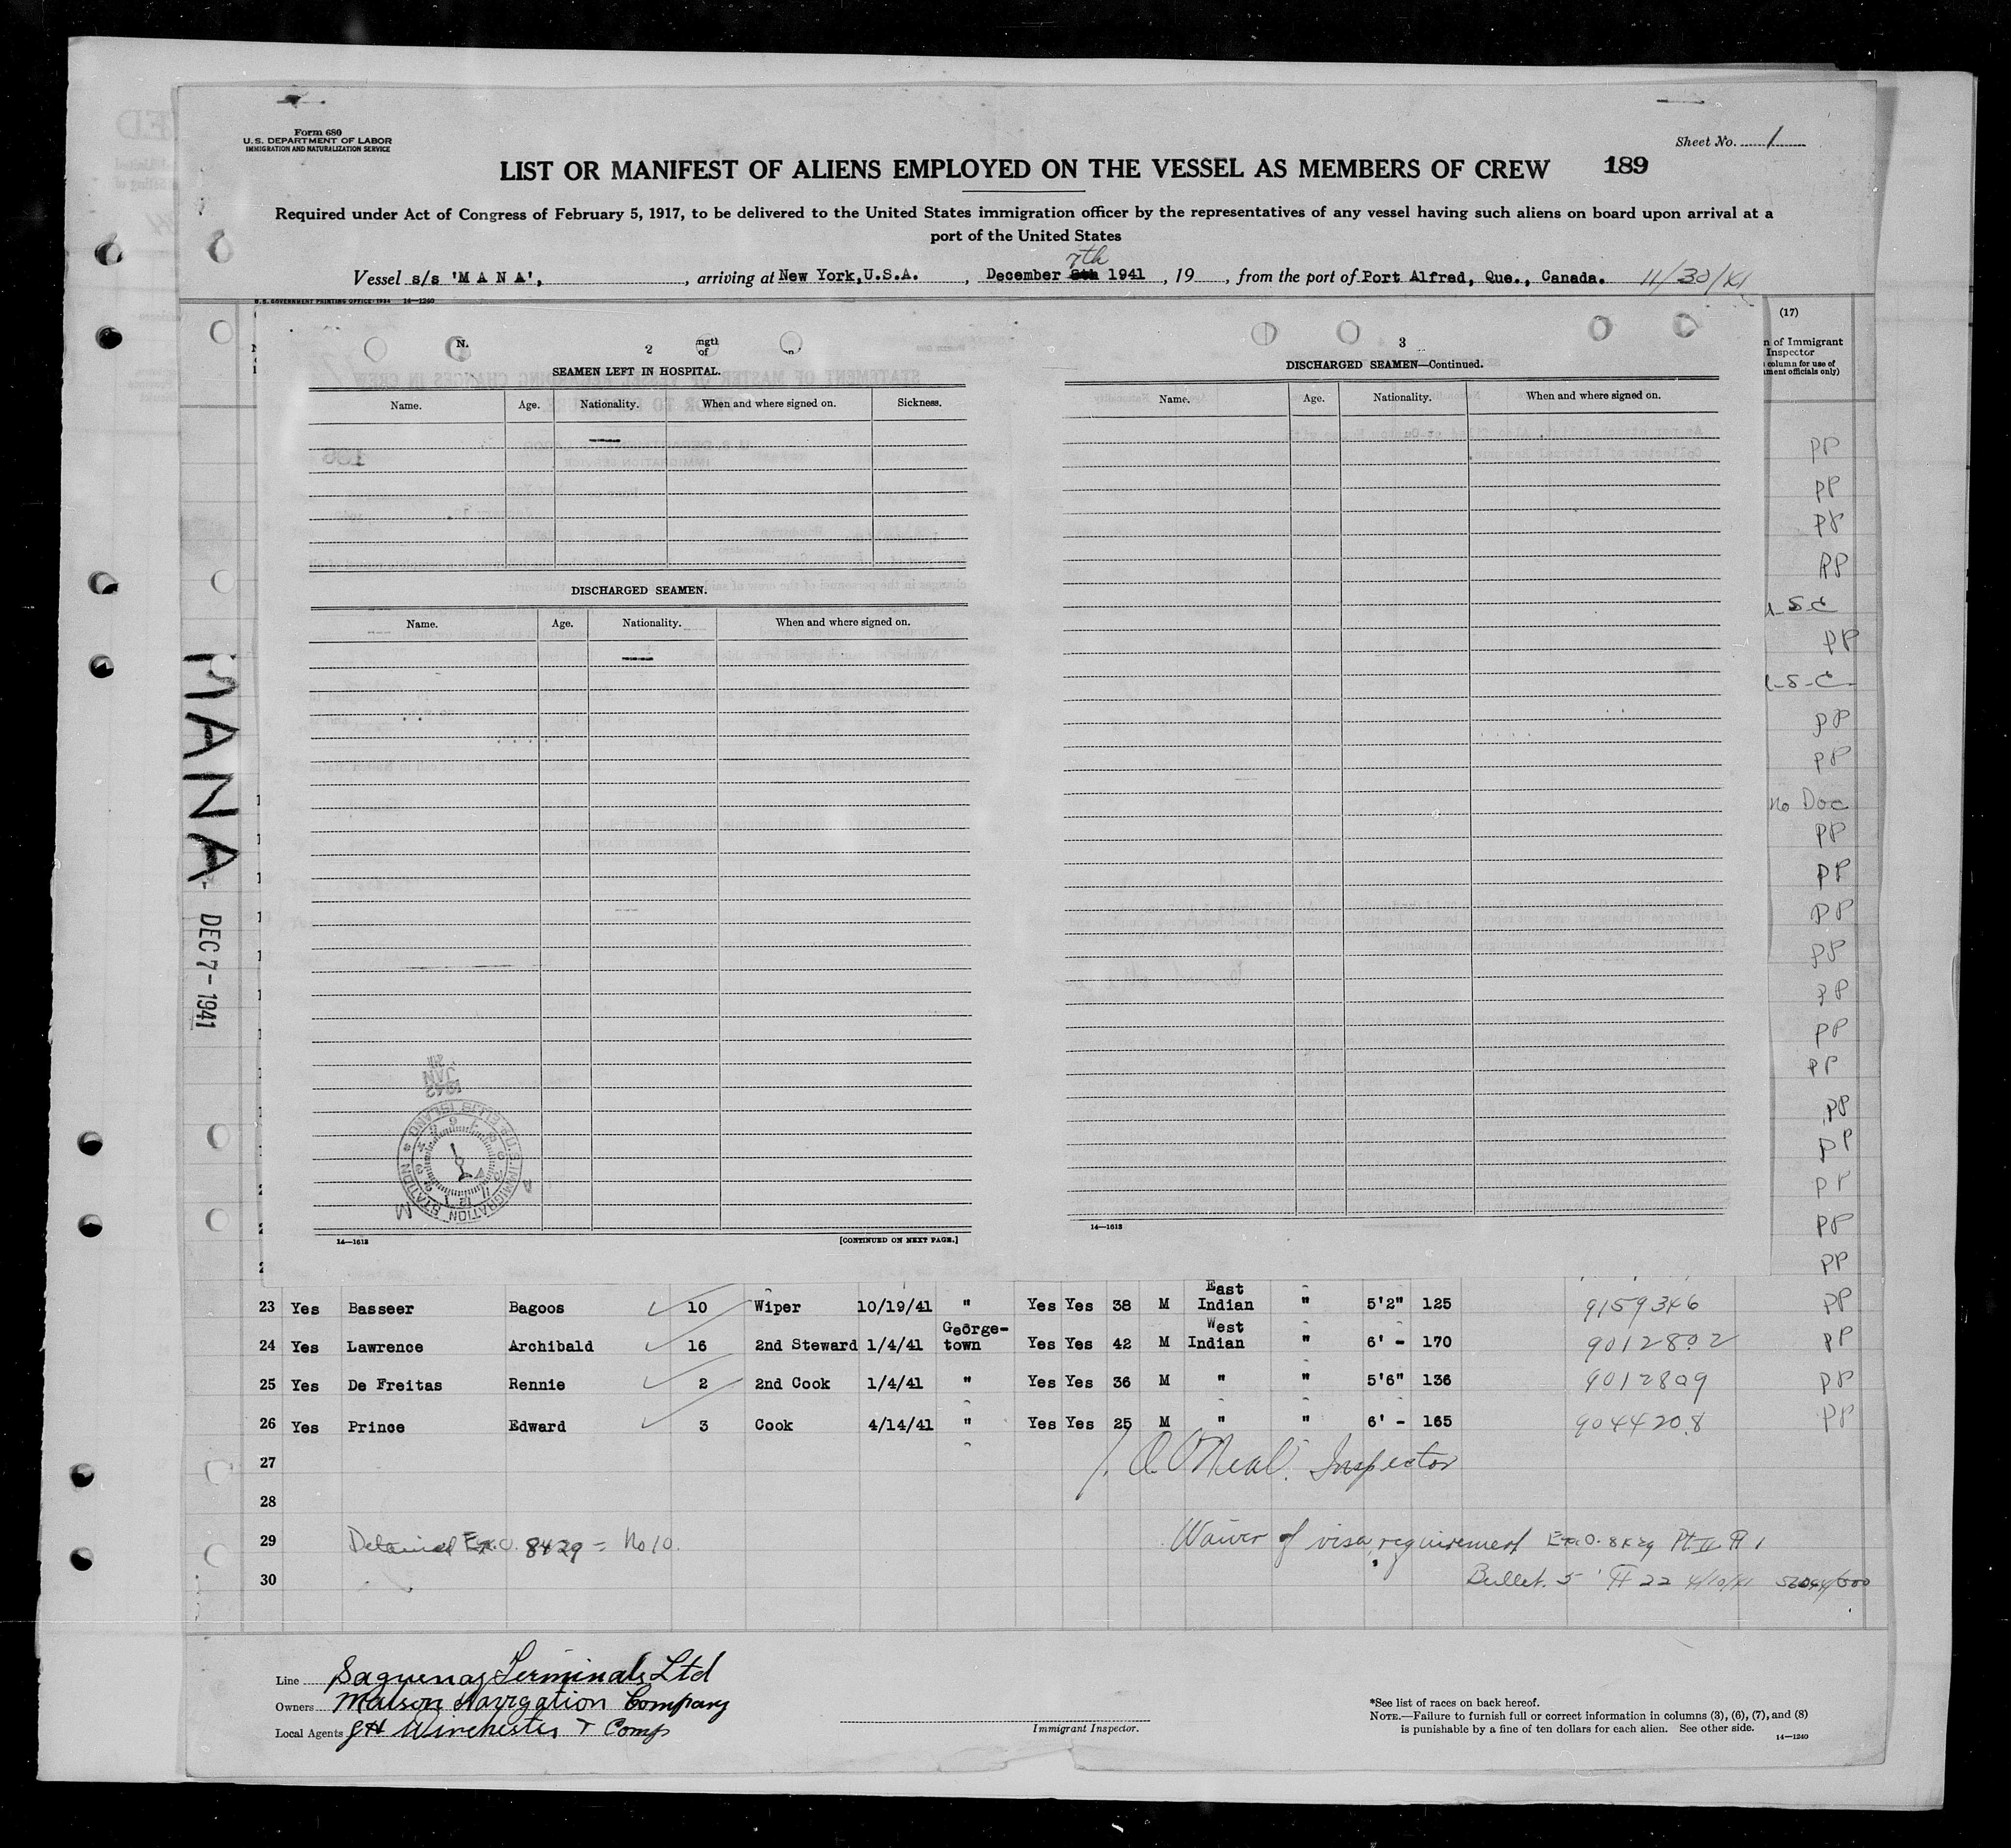 Form 680
U.S. DEPARTMENT OF LABOR
IMMIGRATION AND NATURALIZATION SERVICE
Sheet No. 1
LIST OR MANIFEST OF ALIENS EMPLOYED ON THE VESSEL AS MEMBERS OF CREW 189
Required under Act of Congress of February 5, 1917, to be delivered to the United States immigration officer by the representatives of any vessel having such aliens on board upon arrival at a
port of the United States
7th
Vessel s/s 'M A N A', , arriving at New York, U.S.A. , December 8th 1941 , 19 , from the port of Port Alfred, Que., Canada. 11/30/41
U.S. GOVERNMENT PRINTING OFFICE: 1934 14—1240
2
SEAMEN LEFT IN HOSPITAL.
Name. Age. Nationality. When and where signed on. Sickness.
DISCHARGED SEAMEN.
Name. Age. Nationality. When and where signed on.
14—1613 [CONTINUED ON NEXT PAGE.]
3
DISCHARGED SEAMEN—Continued.
Name. Age. Nationality. When and where signed on.
14—1613
(17)
n of Immigrant
Inspector
column for use of
ment officials only)
PP
PP
PP
PP
S C
PP
S - C
PP
PP
no Doc
PP
PP
PP
PP
PP
PP
PP
PP
PP
PP
PP
PP
MANA
DEC 7 - 1941
JAN
1942
U.S. IMMIGRATION STATION ELLIS ISLAND
23 Yes Basseer Bagoos 10 Wiper 10/19/41 " Yes Yes 38 M East Indian " 5'2" 125 9159346 PP
24 Yes Lawrence Archibald 16 2nd Steward 1/4/41 George-town Yes Yes 42 M West Indian " 6' - 170 9012802 PP
25 Yes De Freitas Rennie 2 2nd Cook 1/4/41 " Yes Yes 36 M " " 5'6" 136 9012809 PP
26 Yes Prince Edward 3 Cook 4/14/41 " Yes Yes 25 M " " 6' - 165 9044208 PP
27 O'Neal. Inspector
28
29 Detained Ex.O. 8429 = No 10. Waiver of visa requirement Ex.O. 8429 Pt II 1
30 Bullet. 5 22 4/10/41
Line Saguenay Terminals Ltd
Owners Matson Navigation Company
Local Agents J H Winchester & Comp
Immigrant Inspector.
*See list of races on back hereof.
NOTE.—Failure to furnish full or correct information in columns (3), (6), (7), and (8)
is punishable by a fine of ten dollars for each alien. See other side.
14—1240